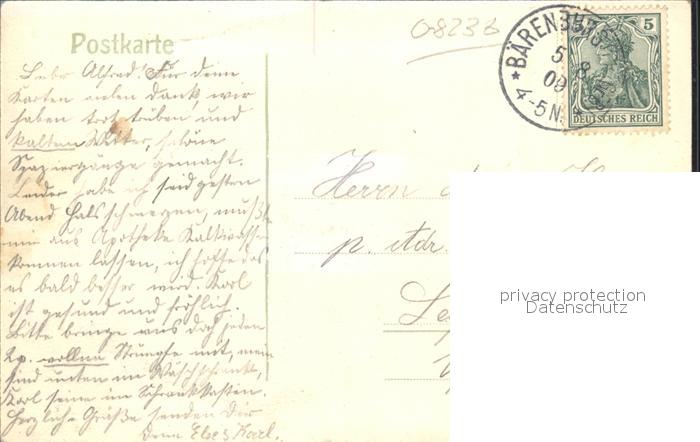 Postkarte
08236
BÄRENBURG
5 8
09
4-5N.
5
DEUTSCHES REICH
Lieber Alfred! Für deine
Karten vielen Dank, wir
haben trotz trüben und
kalten Wetter, schöne
Spaziergänge gemacht.
Leider habe ich seid gestern
Abend Halsschmerzen, mußte
mir aus Apotheke
kommen lassen, ich hoffe das
es bald besser wird. Karl
ist gesund und fröhlich.
Bitte bringe uns doch jeden
2 p. wollne Strümpfe mit, mein
sind unten im Wäschschrank,
Karl seine im Schrankkasten.
Herzliche Grüße senden Dir
Deine Else & Karl.
Herrn
p. Adr.
privacy protection
Datenschutz